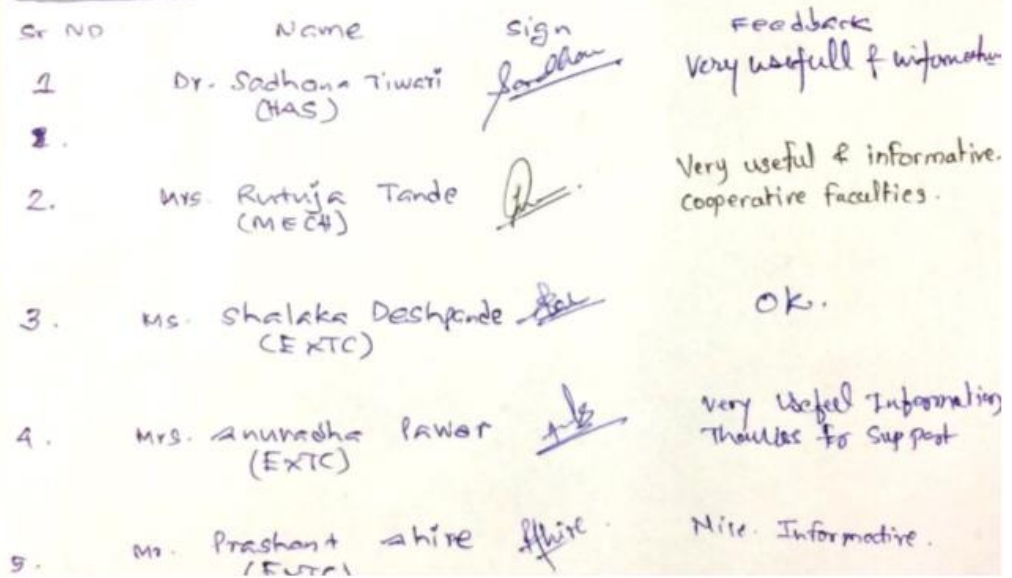 Sr NO Name Sign Feedback
1 Dr. Sadhana Tiwari Very usefull & informative
(HAS)
2. Mrs. Rutuja Tande Very useful & informative.
(MECH) cooperative faculties.
3. Ms. Shalaka Deshpande OK.
(EXTC)
4. Mrs. Anuradha Pawar Very Useful Information
(EXTC) Thanks for Support
5. Mr. Prashant Ahire Ahire. Nice. Informative.
(EXTC)